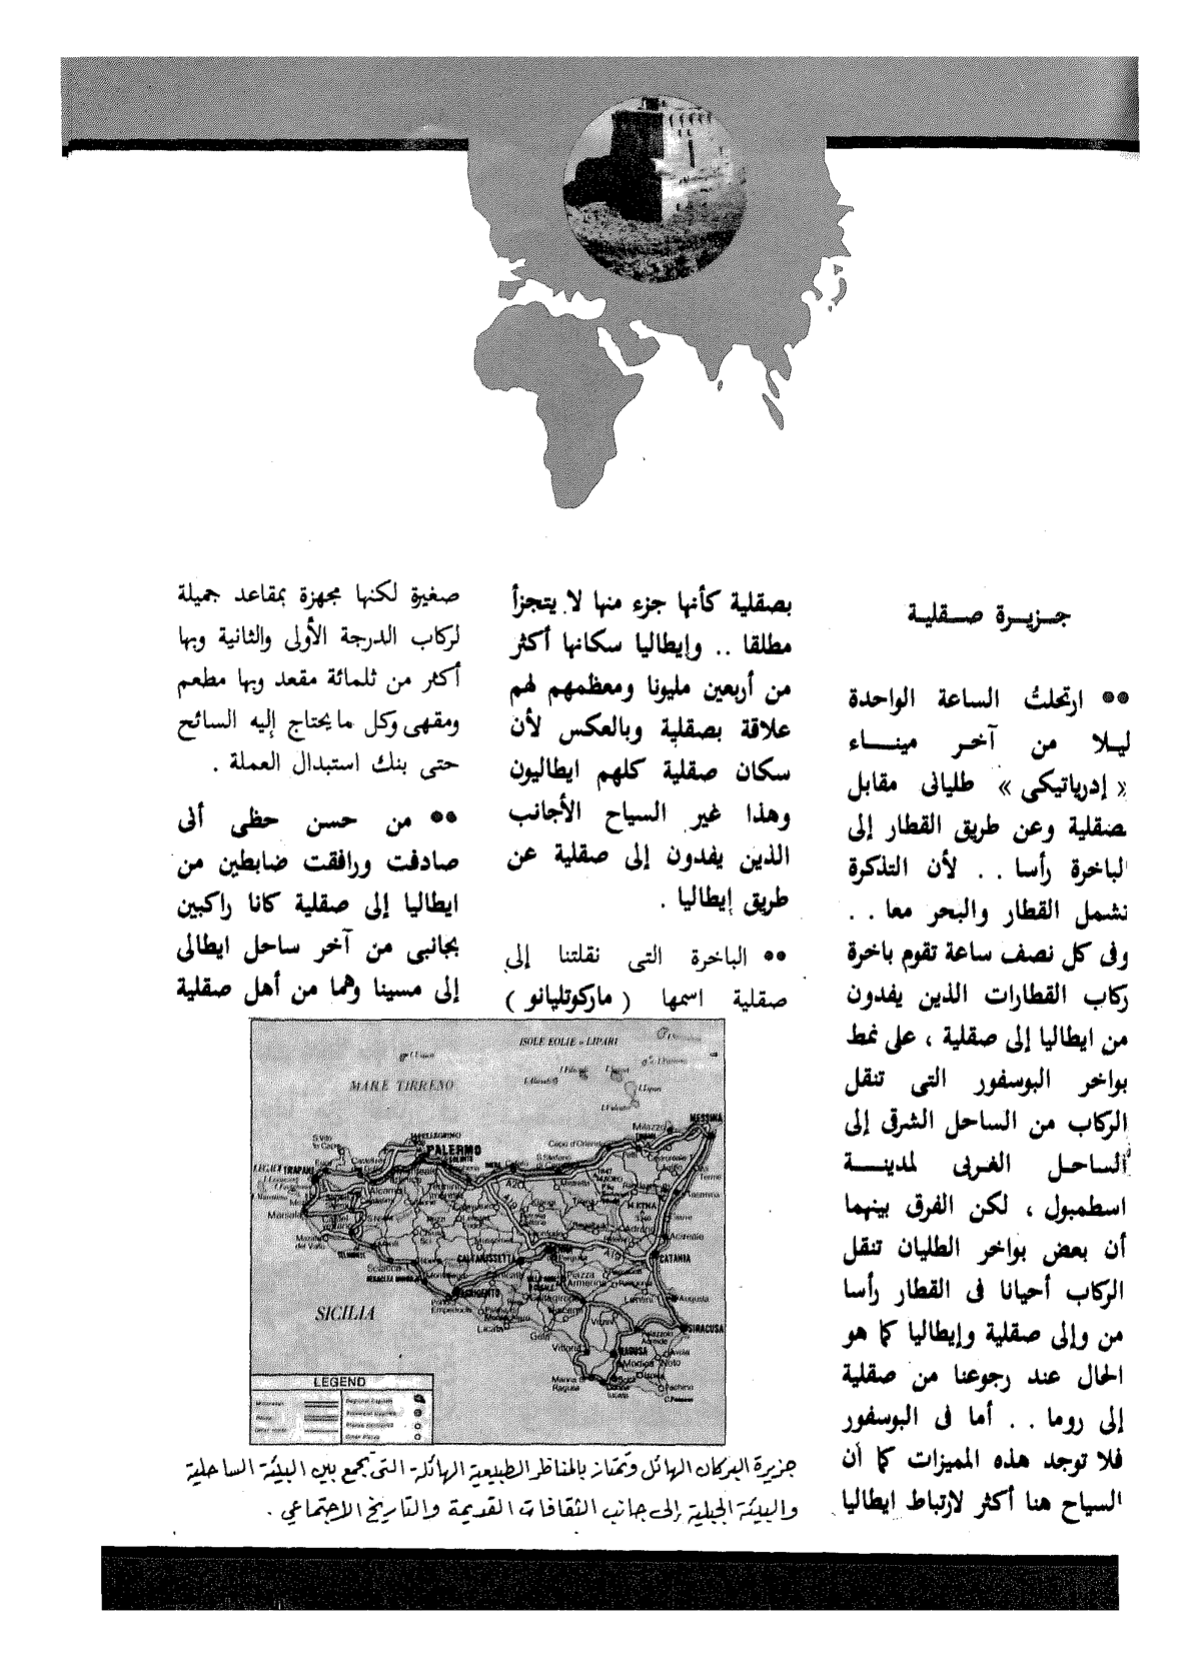 جـزيـرة صـقليـة
** ارتحلتُ الساعة الواحدة
ليـلا من آخـر مينـــاء
« إدرياتيكى » طليانى مقابل
صقلية وعن طريق القطار إلى
الباخرة رأسا . . لأن التذكرة
تشمل القطار والبحر معا . .
وفى كل نصف ساعة تقوم باخرة
ركاب القطارات الذين يفدون
من ايطاليا إلى صقلية ، على نمط
بواخر البوسفور التى تنقل
الركاب من الساحل الشرقى إلى
الساحـل الغـربى لمدينـــة
اسطمبول ، لكن الفرق بينهما
أن بعض بواخر الطليان تنقل
الركاب أحيانا فى القطار رأسا
من وإلى صقلية وإيطاليا كما هو
الحال عند رجوعنا من صقلية
إلى روما . . أما فى البوسفور
فلا توجد هذه المميزات كما أن
السياح هنا أكثر لارتباط ايطاليا
بصقلية كأنها جزء منها لا يتجزأ
مطلقا . . وإيطاليا سكانها أكثر
من أربعين مليونا ومعظمهم لهم
علاقة بصقلية وبالعكس لأن
سكان صقلية كلهم ايطاليون
وهذا غير السياح الأجانب
الذين يفدون إلى صقلية عن
طريق إيطاليا .
** الباخرة التى نقلتنا إلى
صقلية اسمها ( ماركوتليانو )
صغيرة لكنها مجهزة بمقاعد جميلة
لركاب الدرجة الأولى والثانية وبها
أكثر من ثلمائة مقعد وبها مطعم
ومقهى وكل ما يحتاج إليه السائح
حتى بنك استبدال العملة .
** من حسن حظى أنى
صادفت ورافقت ضابطين من
ايطاليا إلى صقلية كانا راكبين
بجانبى من آخر ساحل ايطالى
إلى مسينا وهما من أهل صقلية
ISOLE EOLIE o LIPARI
MARE TIRRENO
MESSINA
Milazzo
PALERMO
TRAPANI
Marsala
CALTANISSETTA
CATANIA
Acireale
Sciacca
AGRIGENTO
Piazza
Armerina
Augusta
Licata
Gela
SIRACUSA
Vittoria
RAGUSA
Modica
Noto
SICILIA
LEGEND
جزيرة البركان الهائل وتمتاز بالمناظر الطبيعية الهائلة التى تجمع بين البيئة الساحلية
والبيئة الجبلية إلى جانب الثقافات القديمة والتاريخ الاجتماعي .